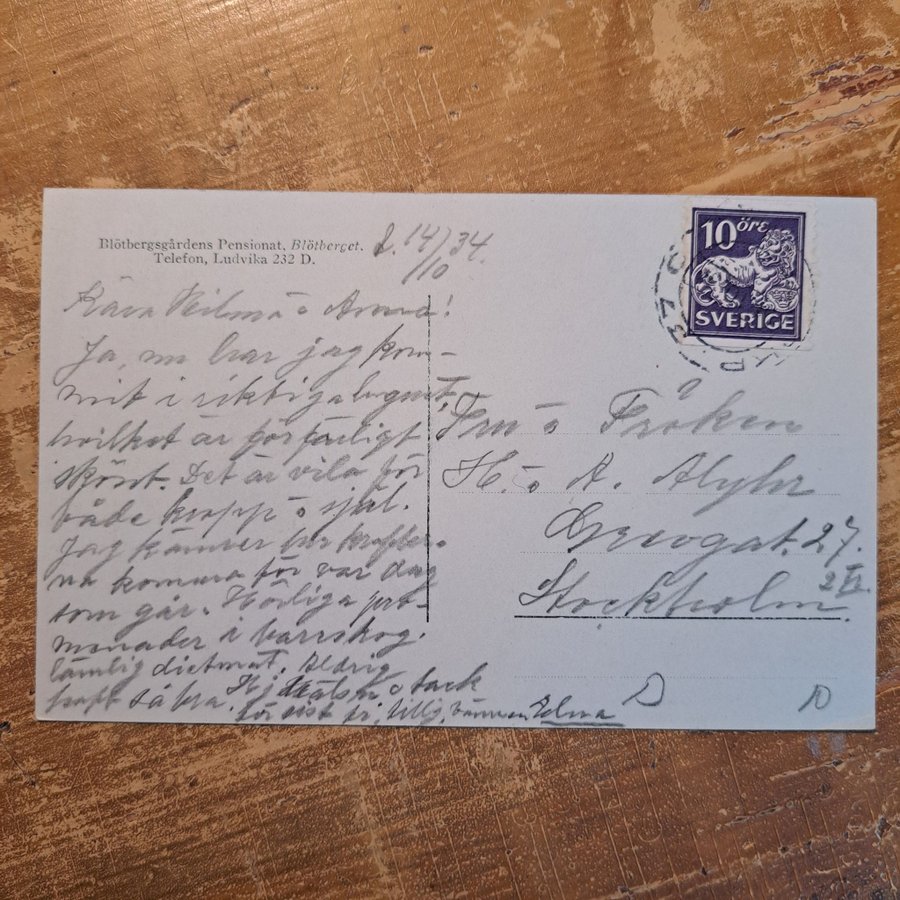 Blötbergsgårdens Pensionat. Blötberget.
Telefon, Ludvika 232 D.
d. 14/10 34.
Kära Vilma o Anna!
Ja, nu har jag kom-
mit i riktiga lugnet,
hvilket är förfärligt
skönt. Det är vila för
både kropp o själ.
Jag känner hur krafter-
na komma för var dag
som går. Härliga pro-
menader i barrskog.
lämlig dietmat. Aldrig
haft så bra. Hj. hälsn. o tack
för sist fr. tillg. vännen Selma
10 ÖRE
SVERIGE
Fru o Fröken
H. o A. Alyhr
27.
2 tr.
Stockholm
D
D